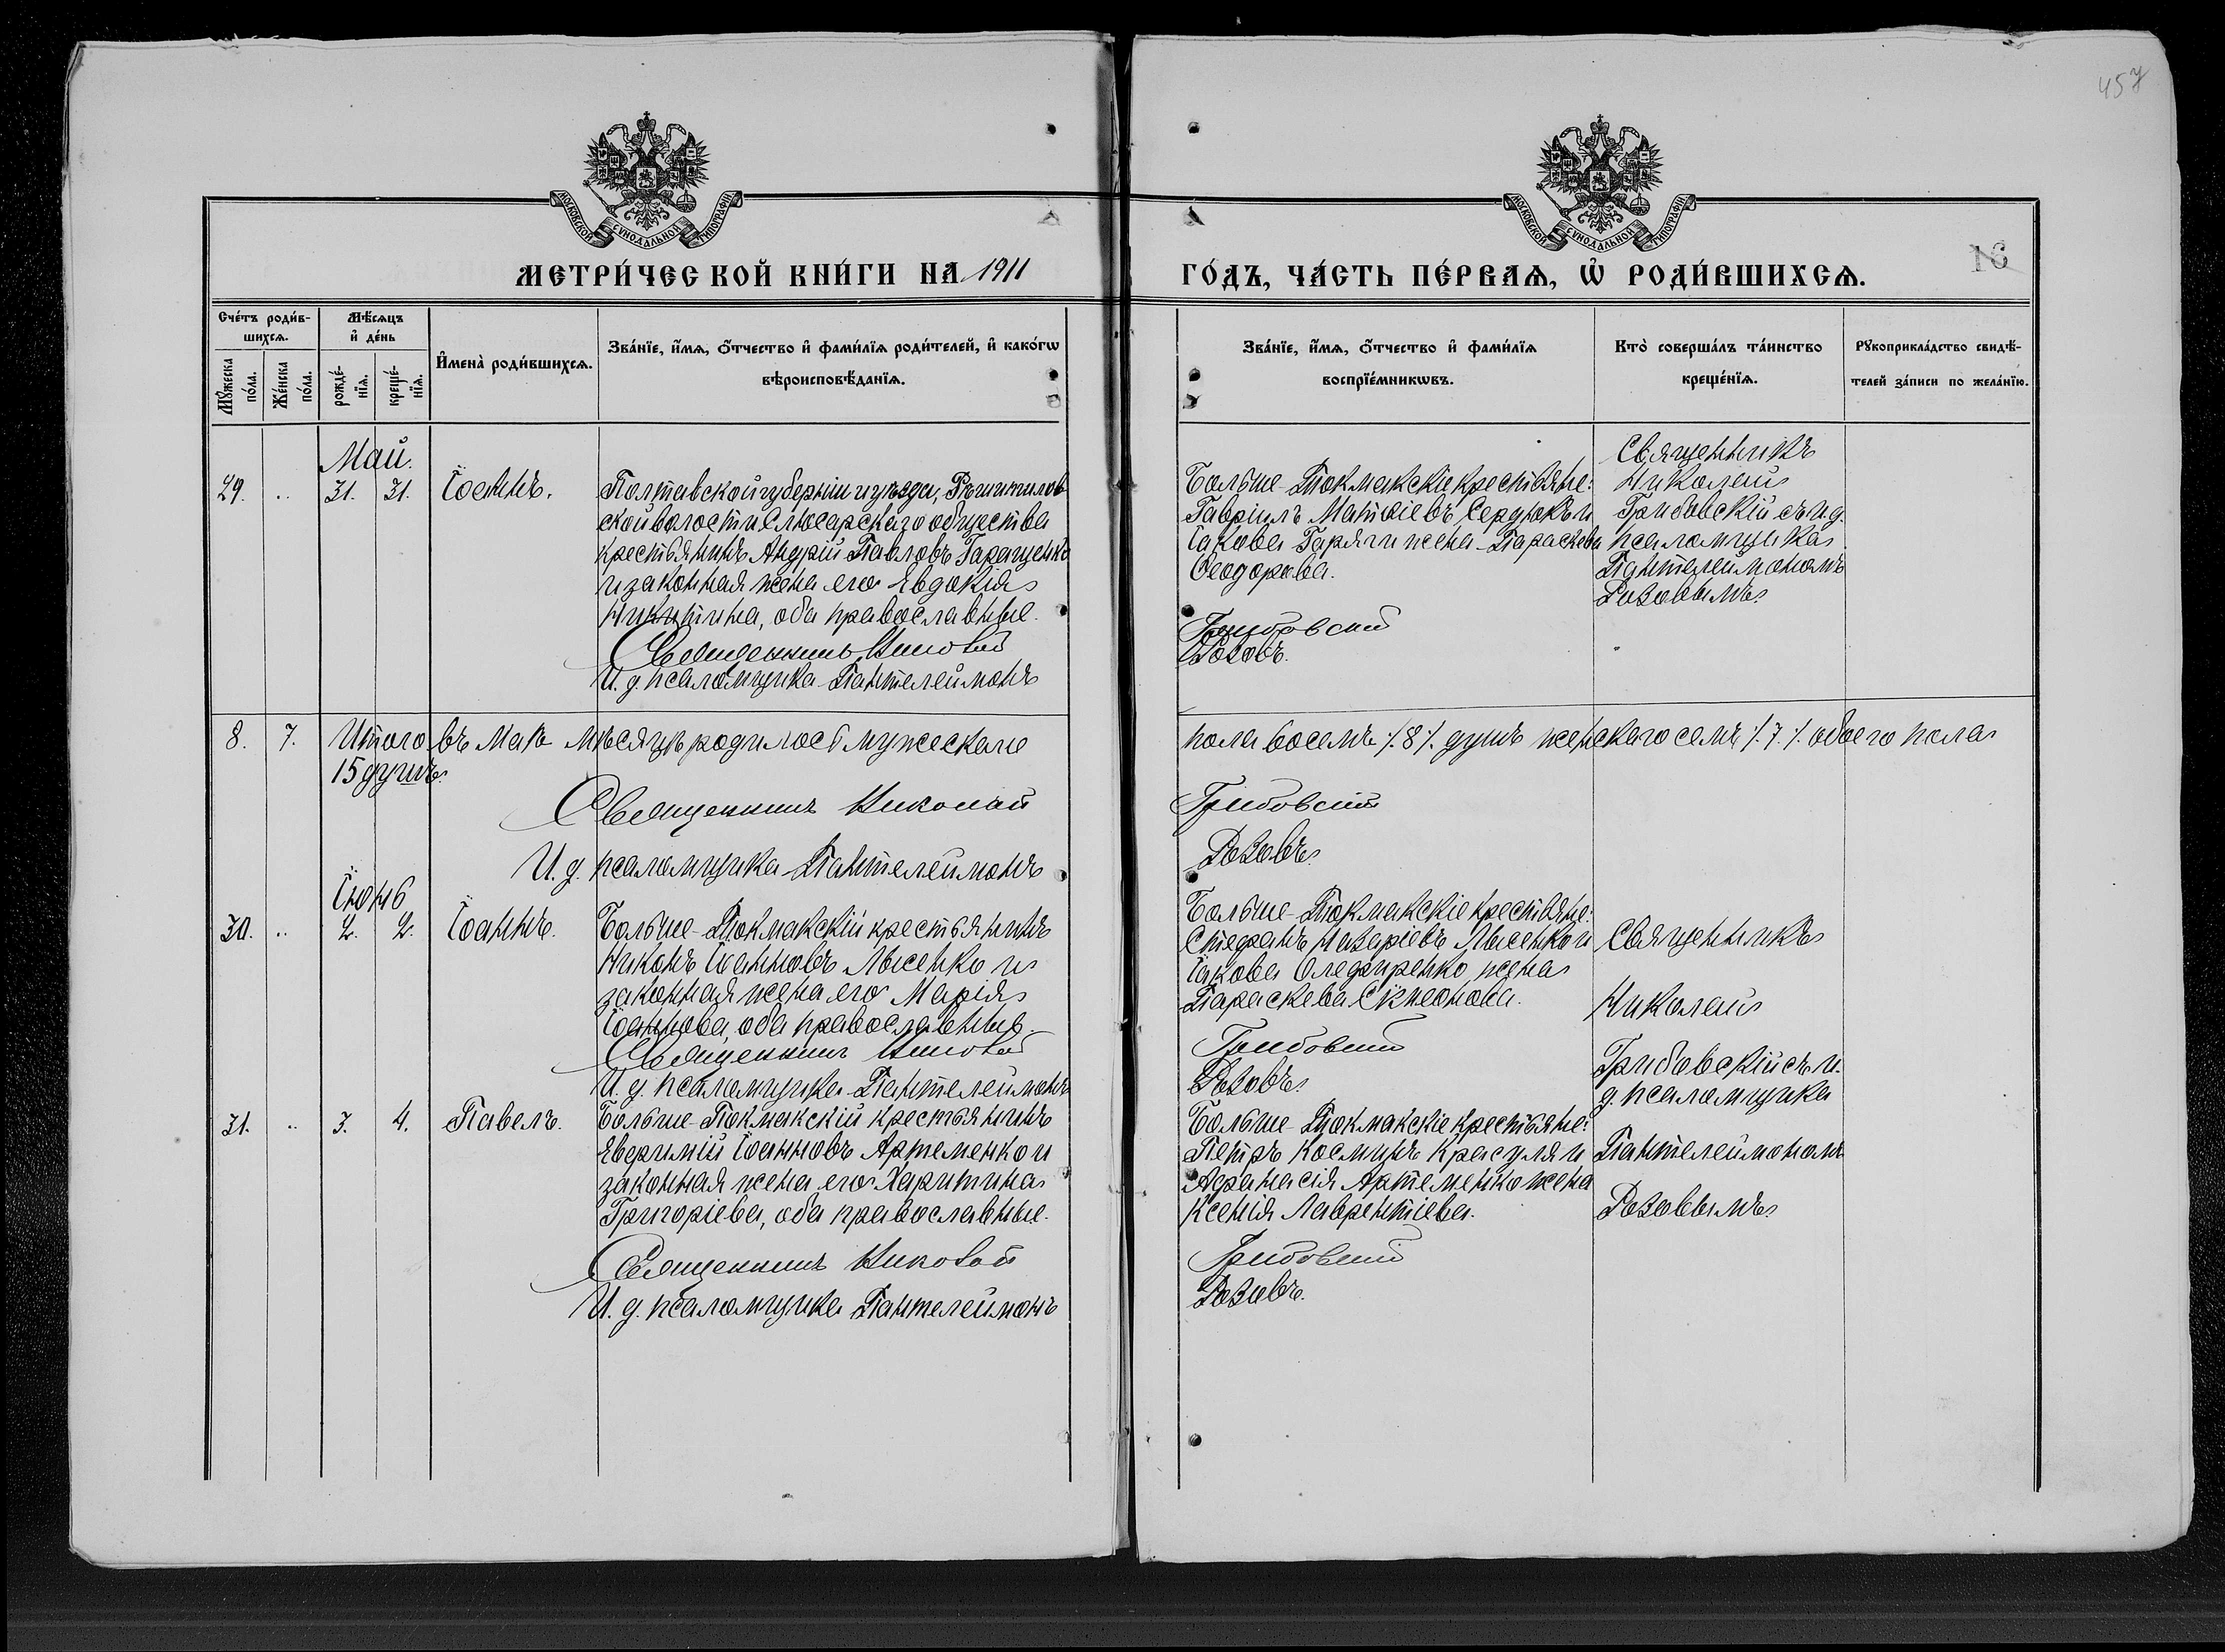 457
МОСКОВСКОЙ СѴНОДАЛЬНОЙ ТИПОГРАФІИ
МОСКОВСКОЙ СѴНОДАЛЬНОЙ ТИПОГРАФІИ
16
МЕТРИ́ЧЕСКОЙ КНИ́ГИ НА 1911
ГО́ДЪ, ЧА́СТЬ ПЕ́РВАЯ, Ѡ҆ РОДИ́ВШИХСЯ.
Сче́тъ роди́в-
шихся.
Мѣ́сяцъ
и҆ де́нь
Мꙋ́жеска
по́ла.
Же́нска
по́ла.
рожде́-
нїѧ.
креще́-
нїѧ.
И҆мена̀ роди́вшихсѧ.
Зва́нїе, и҆́мѧ, ѻ҆́тчество и҆ фами́лїѧ роди́телей, и҆ како́гѡ
вѣроисповѣ́данїѧ.
Зва́нїе, и҆́мѧ, ѻ҆́тчество и҆ фами́лїѧ
воспрїе́мникѡвъ.
Кто̀ соверша́лъ та́инство
креще́нїѧ.
Рꙋкоприкла́дство свидѣ́-
телей за́писи по жела́нїю.
Май.
29. .. 31. 31. Іоаннъ.
Полтавской губерніи и уѣзда, Рѣшетилов
ской волости Слюсарскаго общества
крестьянинъ Андрій Павловъ Геращенко
и законная жена его Евдокія
Никитина, оба православные.
Священникъ Николай
И. д. псаломщика Пантелеймонъ
Больше-Токмакскіе крестьяне:
Гавріилъ Матѳіевъ Сердюкъ и
Іакова Гаряги жена Параскева
Ѳеодорова.
Грибовскій
Розовъ.
Священникъ
Николай
Грибовскій съ и.д.
псаломщика
Пантелеймономъ
Розовымъ.
8. 7. Итого въ маѣ мѣсяцѣ родилось мужескаго
пола восемь /.8/. душъ женскаго семь /.7./. обоего пола
15 душъ.
Священникъ Николай
Грибовскій
И. д. псаломщика Пантелеймонъ
Розовъ.
Іюнь
30. .. 2. 2. Іоаннъ.
Больше-Токмакскій крестьянинъ
Никонъ Іоанновъ Лысенко и
законная жена его Марія
Іоаннова, оба православные.
Священникъ Николай
И. д. псаломщика Пантелеймонъ
Больше-Токмакскіе крестьяне:
Стефанъ Назаріевъ Лысенко и
Іакова Олефиренко жена
Параскева Симеонова.
Грибовскій
Розовъ.
Священникъ
Николай
Грибовскій съ и.
д. псаломщика
Пантелеймономъ
Розовымъ
31. .. 3. 4. Павелъ.
Больше-Токмакскій крестьянинъ
Евфимій Іоанновъ Артеменко и
законная жена его Харитина
Григоріева, оба православные.
Священникъ Николай
И. д. псаломщика Пантелеймонъ
Больше-Токмакскіе крестьяне:
Петръ Космичъ Красуля и
Афанасія Артеменко жена
Ксенія Лаврентіева.
Грибовскій
Розовъ.